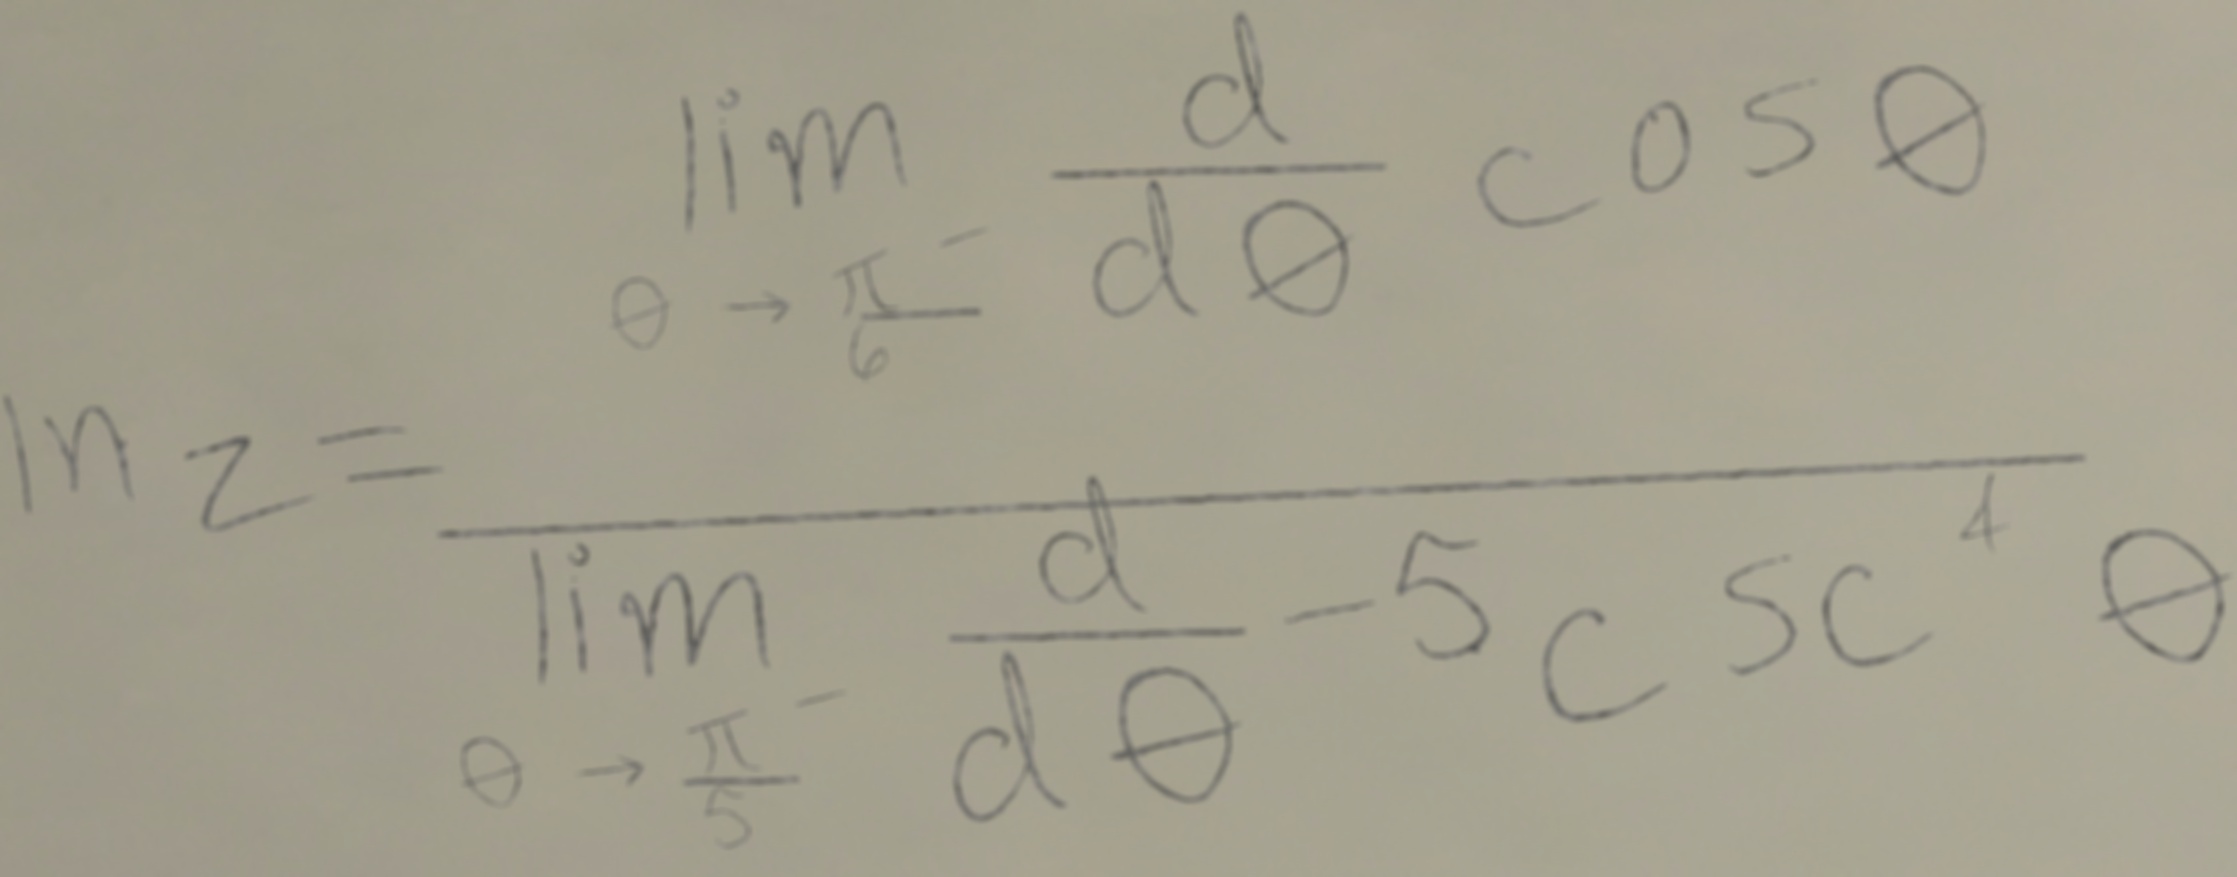 ln z = \frac{\lim_{\theta \to \frac{\pi}{6}^-} \frac{d}{d\theta} \cos\theta}{\lim_{\theta \to \frac{\pi}{5}^-} \frac{d}{d\theta} -5\csc^4\theta}